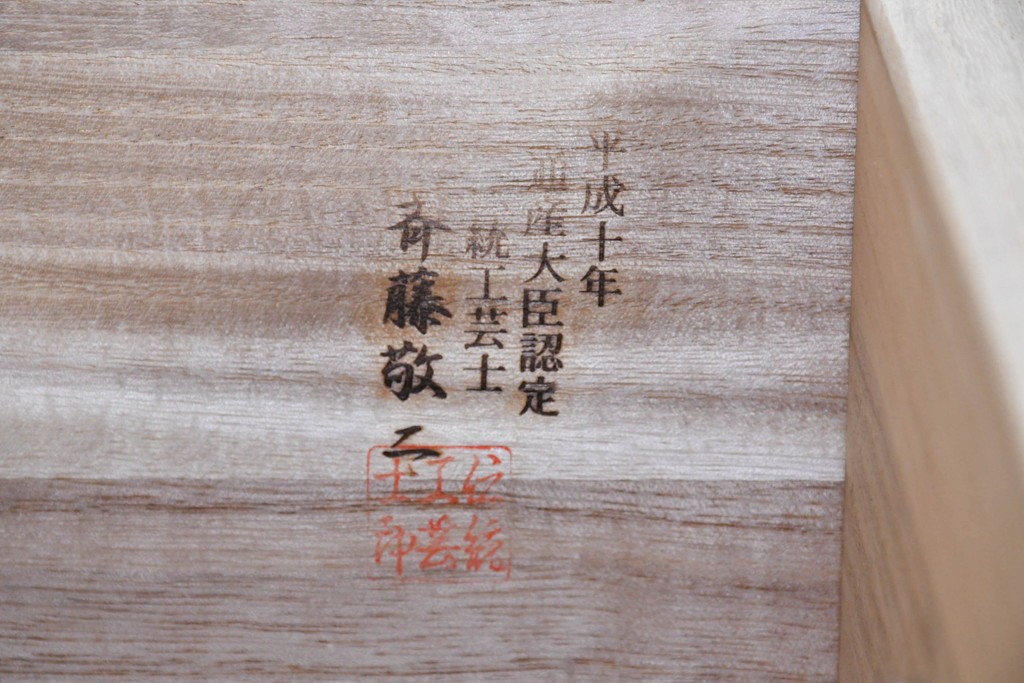 平成十年
通産大臣認定
統工芸士
斉藤敬二
伝統
工芸
士印